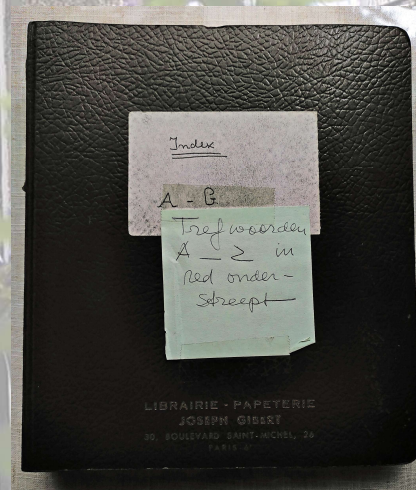 Index
A - G
Trefwoorden
A - Z in
red onder-
streept
LIBRAIRIE - PAPETERIE
JOSEPH GIBERT
30, BOULEVARD SAINT-MICHEL, 26
PARIS